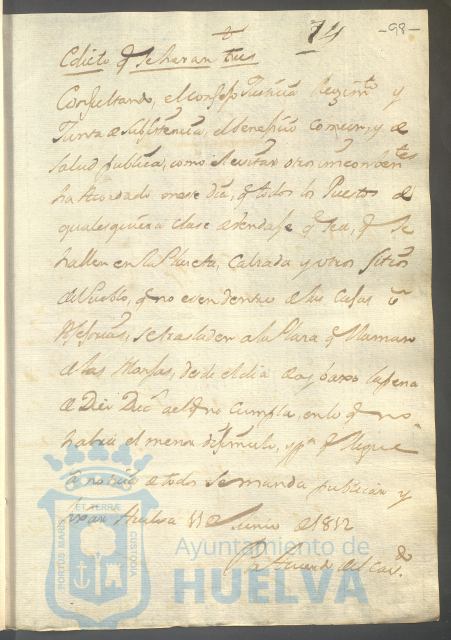 74 -98-
Edicto q.e se haran tres
Consultando, el consejo Justicia Regim.to y
Junta de subsistencia, el beneficio comun, y de
salud publica, como el evitar otros inconben.tes
ha acordado en este dia, q.e todos los Puestos de
qualesquiera clase de bendaje q.e sea, q.e se
hallen en la Placeta, Calzada y otros Sitios
del Pueblo, q.e no esten dentro de las Casas ó
Acesorias, se trasladen a la Plaza q.e llaman
de las Monjas, desde el dia de oy baxo la pena
de Diez Duc.s al q.e no cumpla, en lo q.e no
habrá el menor disimulo, y p.a q.e llegue
á noticia de todos se manda publicar y
fixar Huelva 11 de Junio de 1812
Por Acuerdo del Cav.do
PORTUS MARIS ET TERRÆ CUSTODIA
Ayuntamiento de
HUELVA